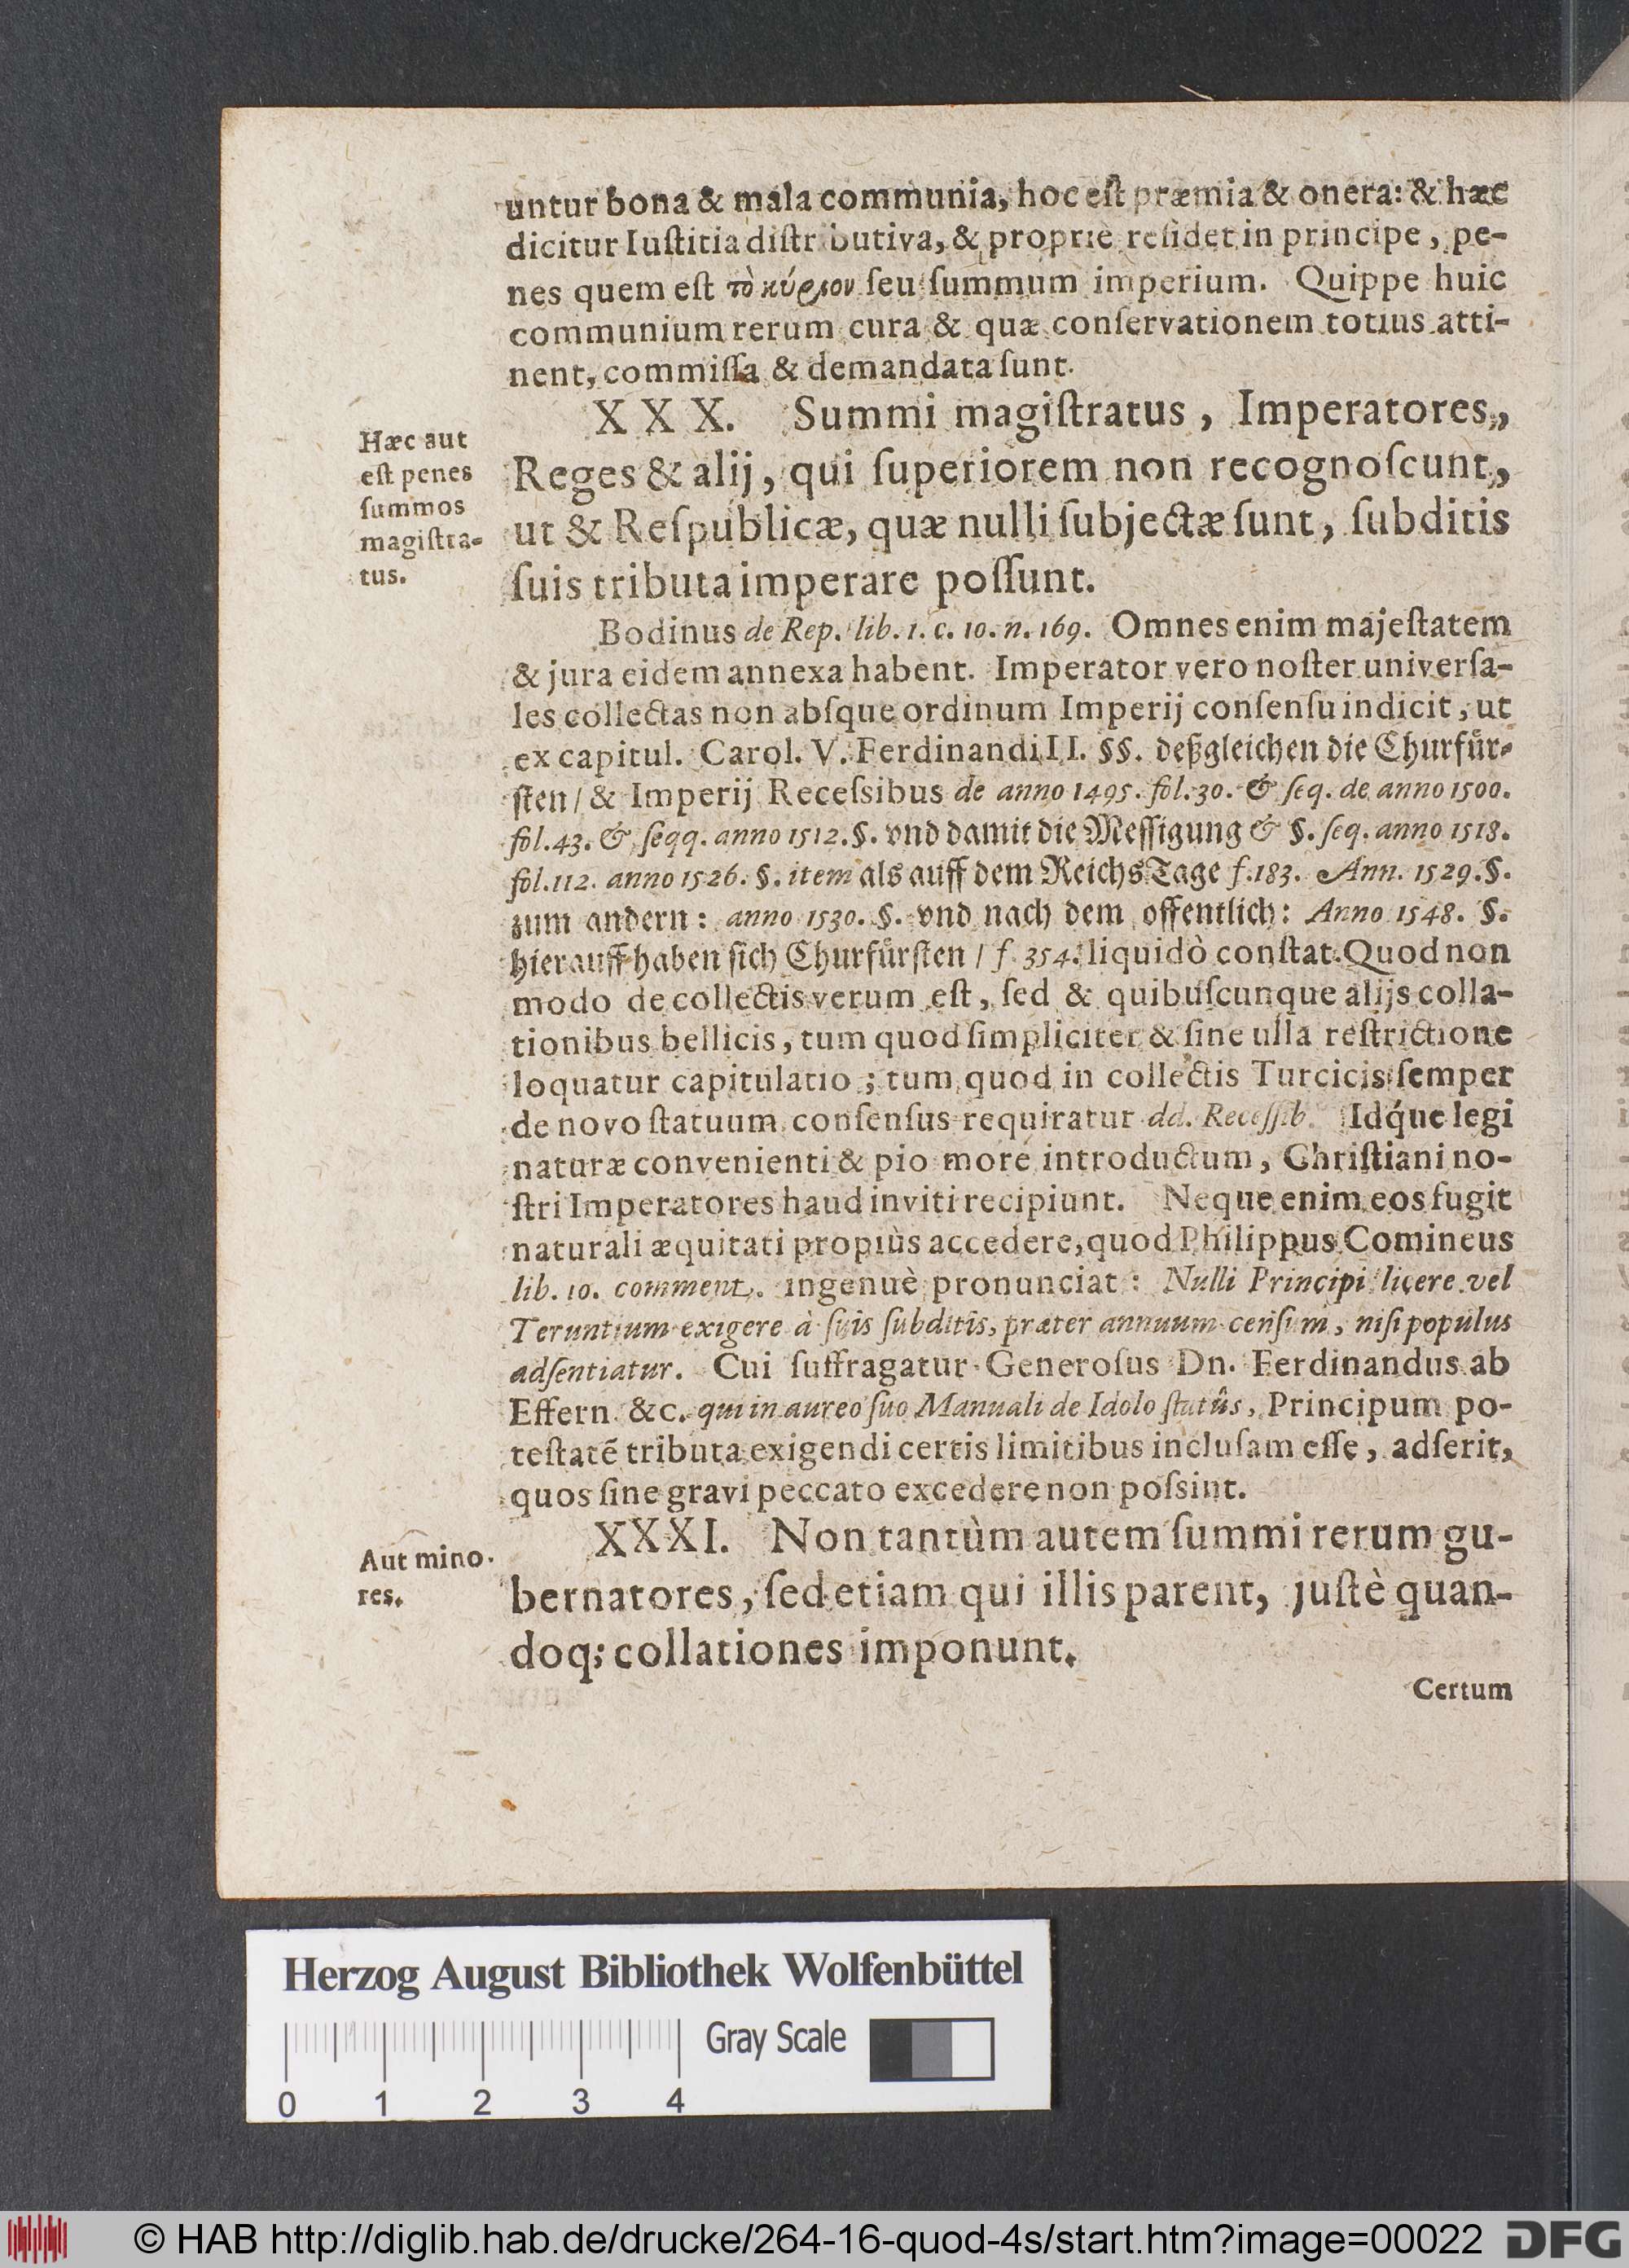 untur bona & mala communia, hoc eſt præmia & onera: & hæc
dicitur Iuſtitia diſtributiva, & propriè reſidet in principe, pe-
nes quem eſt τὸ κύριον ſeu ſummum imperium. Quippe huic
communium rerum cura & quæ conſervationem totius atti-
nent, commiſſa & demandata ſunt.
Hæc aut
eſt penes
ſummos
magiſtra-
tus.
XXX. Summi magiſtratus, Imperatores,
Reges & alij, qui ſuperiorem non recognoſcunt,
ut & Reſpublicæ, quæ nulli ſubjectæ ſunt, ſubditis
ſuis tributa imperare poſſunt.
Bodinus de Rep. lib. 1. c. 10. n. 169. Omnes enim majeſtatem
& jura eidem annexa habent. Imperator vero noſter univerſa-
les collectas non abſque ordinum Imperij conſenſu indicit, ut
ex capitul. Carol. V. Ferdinandi II. §§. deßgleichen die Churfür-
ſten / & Imperij Receſsibus de anno 1495. fol. 30. & ſeq. de anno 1500.
fol. 43. & ſeqq. anno 1512. §. vnd damit die Meſſigung & §. ſeq. anno 1518.
fol. 112. anno 1526. §. item als auff dem ReichsTage f. 183. Ann. 1529. §.
zum andern: anno 1530. §. vnd nach dem offentlich: Anno 1548. §.
hierauff haben ſich Churfürſten / f. 354. liquidò conſtat. Quod non
modo de collectis verum eſt, ſed & quibuſcunque alijs colla-
tionibus bellicis, tum quod ſimpliciter & ſine ulla reſtrictione
loquatur capitulatio; tum quod in collectis Turcicis ſemper
de novo ſtatuum conſenſus requiratur dd. Receſſib. Idq́ue legi
naturæ convenienti & pio more introductum, Chriſtiani no-
ſtri Imperatores haud inviti recipiunt. Neque enim eos fugit
naturali æquitati propiùs accedere, quod Philippus Comineus
lib. 10. comment. ingenuè pronunciat: Nulli Principi licere vel
Teruntium exigere à ſuis ſubditis, præter annuum cenſum, niſi populus
adſentiatur. Cui ſuffragatur Generoſus Dn. Ferdinandus ab
Effern &c. qui in aureo ſuo Manuali de Idolo ſtatûs, Principum po-
teſtatē tributa exigendi certis limitibus incluſam eſſe, adſerit,
quos ſine gravi peccato excedere non poſsint.
Aut mino-
res.
XXXI. Non tantùm autem ſummi rerum gu-
bernatores, ſed etiam qui illis parent, juſtè quan-
doq; collationes imponunt.
Certum
Herzog August Bibliothek Wolfenbüttel
Gray Scale
0 1 2 3 4
© HAB http://diglib.hab.de/drucke/264-16-quod-4s/start.htm?image=00022
DFG